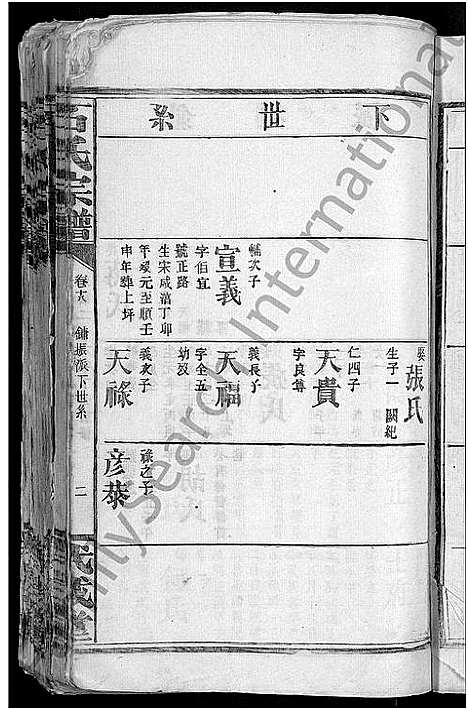 下世系
宣義
幡次子
字伯宣
號正路
生宋咸淳丁卯
年歿元至順壬
申年葬上坪
娶張氏
生子一 闕紀
天貴
仁四子
字良尊
天福
義長子
字全五
幼歿
天祿
義次子
彦恭
祿之子
石氏宗譜
鏞振派下世系
二
FamilySearch International